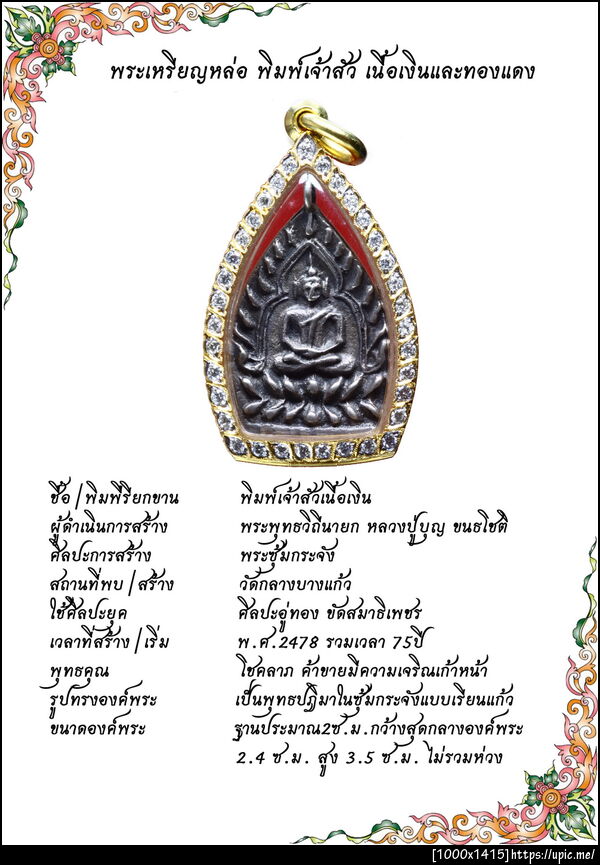 พระเหรียญหล่อ พิมพ์เจ้าสัว เนื้อเงินและทองแดง
ชื่อ/พิมพ์เรียกขาน พิมพ์เจ้าสัวเนื้อเงิน
ผู้ดำเนินการสร้าง พระพุทธวิถีนายก หลวงปู่บุญ ขนธโชติ
ศิลปะการสร้าง พระซุ้มกระจัง
สถานที่พบ/สร้าง วัดกลางบางแก้ว
ใช้ศิลปะยุค ศิลปะอู่ทอง ขัดสมาธิเพชร
เวลาที่สร้าง/เริ่ม พ.ศ.2478 รวมเวลา 75ปี
พุทธคุณ โชคลาภ ค้าขายมีความเจริญเก้าหน้า
รูปทรงองค์พระ เป็นพุทธปฏิมาในซุ้มกระจังแบบเรียนแก้ว
ขนาดองค์พระ ฐานประมาณ2ซ.ม.กว้างสุดกลางองค์พระ
2.4 ซ.ม. สูง 3.5 ซ.ม. ไม่รวมห่วง
[1000x1415]https://upic.me/